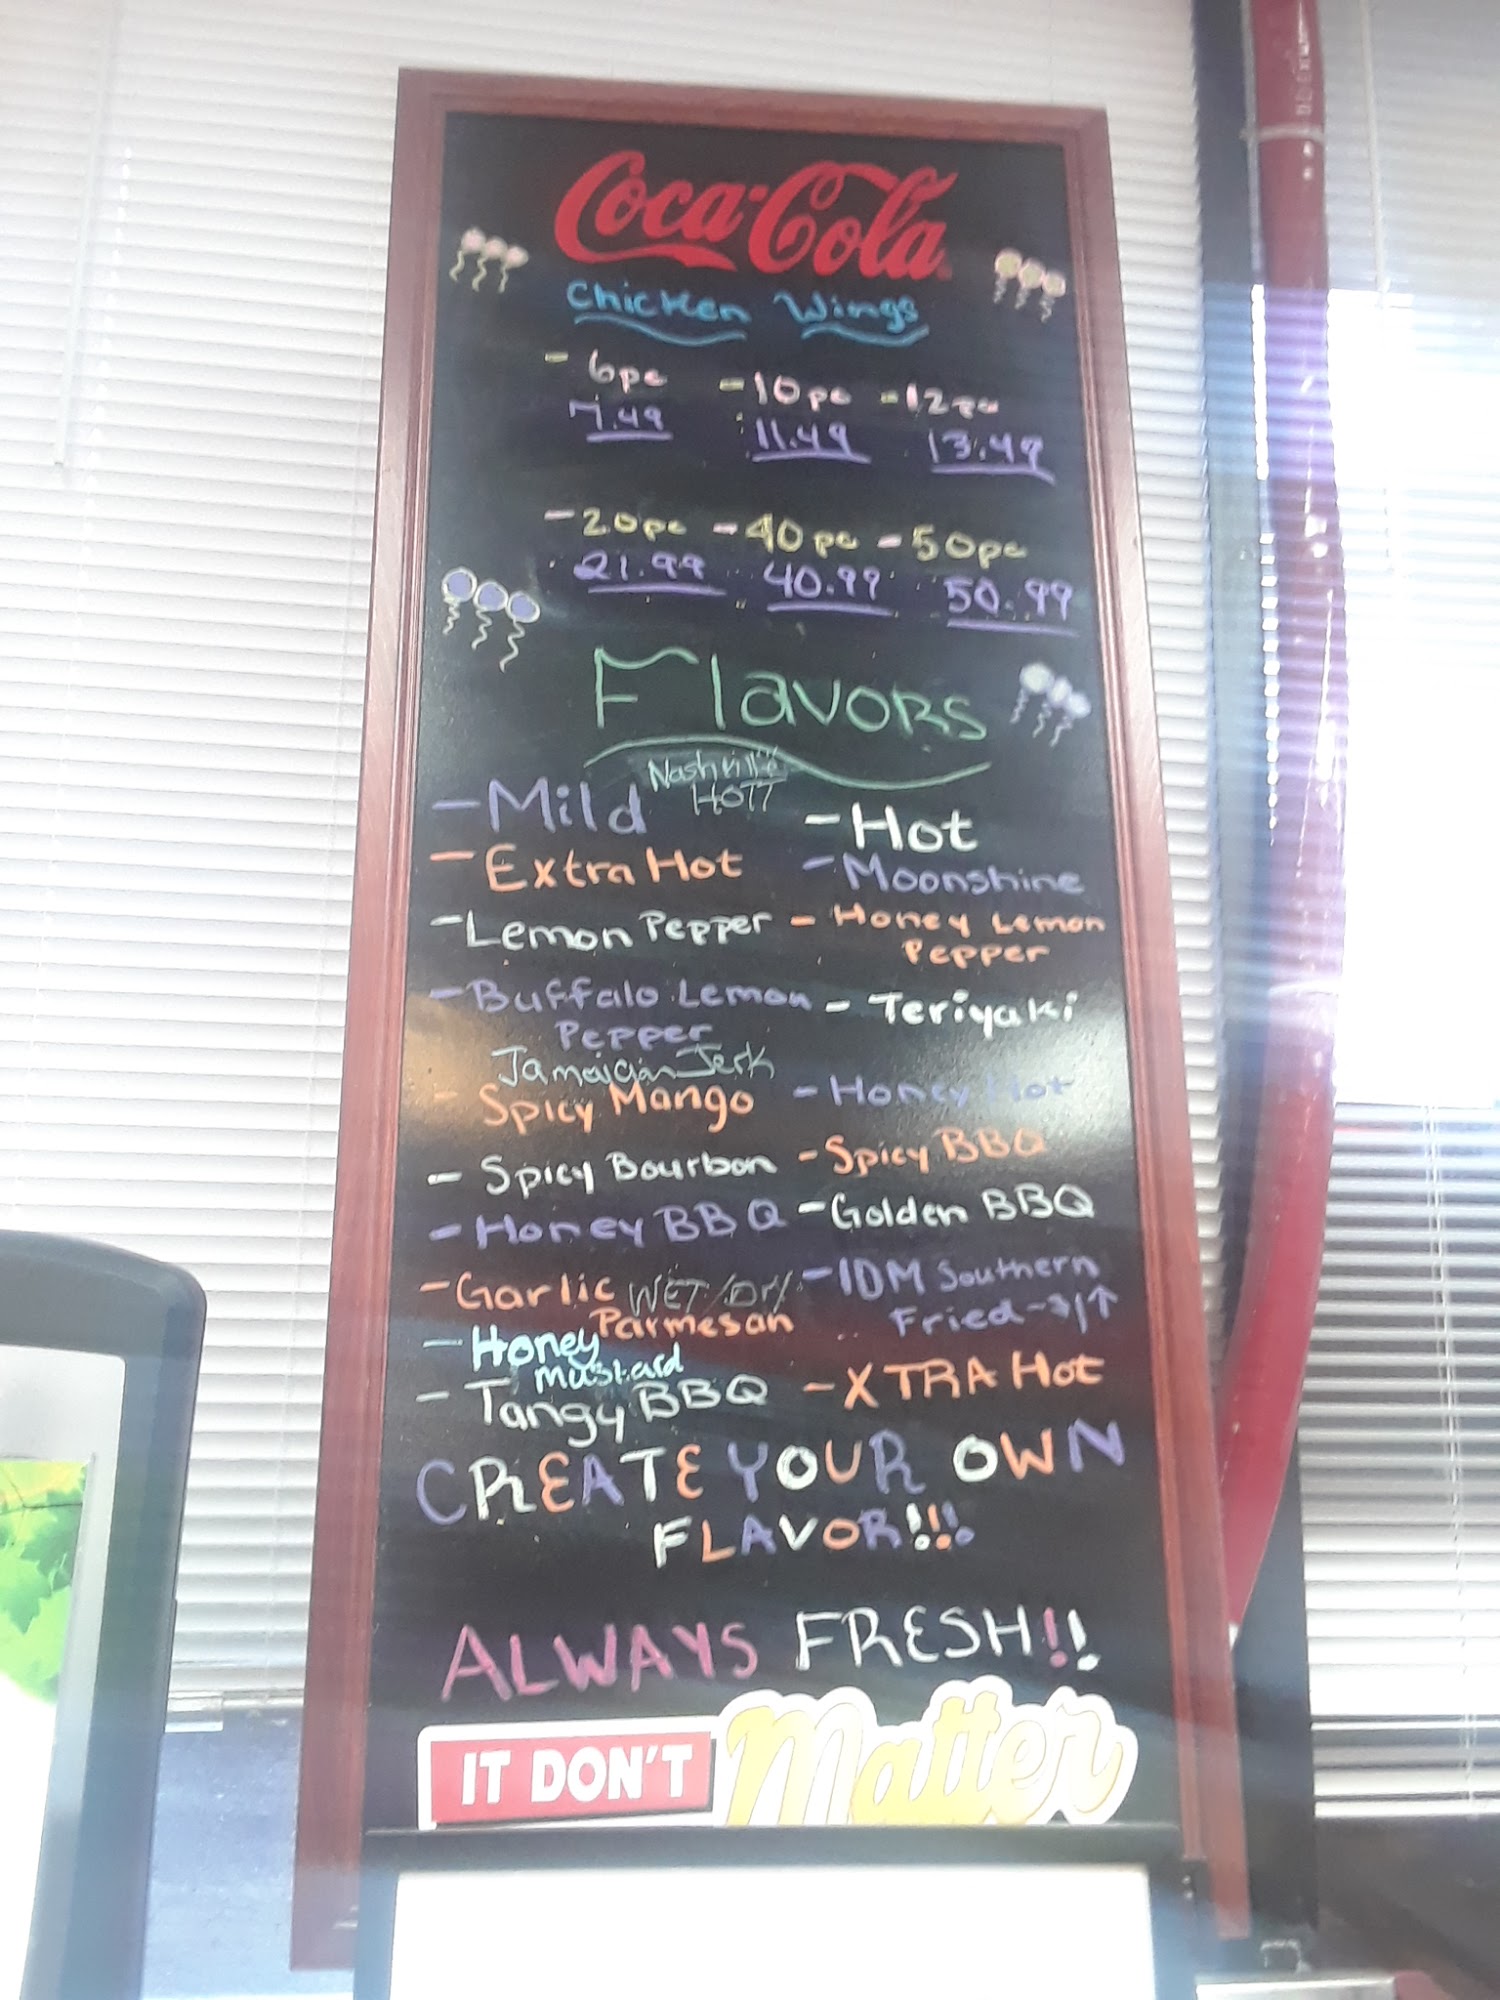 Coca-Cola
Chicken Wings
- 6pc - 10pc - 12pc
7.49 11.49 13.49
- 20pc - 40pc - 50pc
21.99 40.99 50.99
Flavors
Nashville
HOTT
- Mild - Hot
- Extra Hot - Moonshine
- Lemon Pepper - Honey Lemon
Pepper
- Buffalo Lemon - Teriyaki
Pepper
Jamaican Jerk
- Spicy Mango - Honey Hot
- Spicy Bourbon - Spicy BBQ
- Honey BBQ - Golden BBQ
- Garlic WET/Dry - IDM Southern
Parmesan Fried
- Honey
Mustard
- Tangy BBQ - XTRA Hot
CREATE YOUR OWN
FLAVOR!!!
ALWAYS FRESH!!
IT DON'T Matter